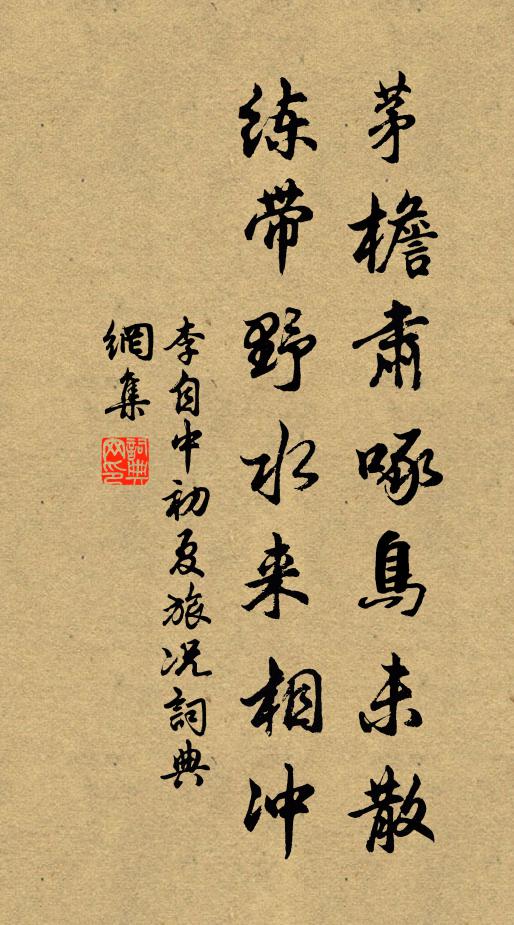 茅檐肅啄鳥未散
练带野水来相冲
李自中初夏旅况詞典
網集
詞典網印